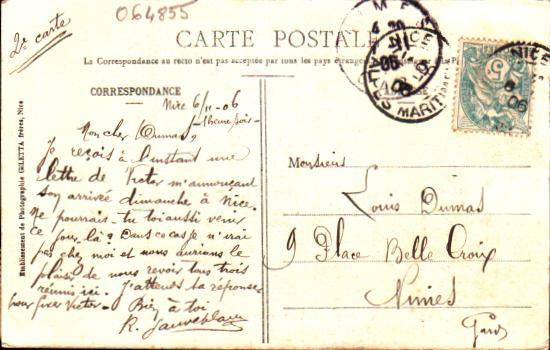 064855
2e carte
CARTE POSTALE
La Correspondance au recto n'est pas acceptée par tous les pays étrangers
CORRESPONDANCE
Nice 6/11-06
1 heure soir-
Mon cher Dumas,
Je reçois à l'instant une
lettre de Victor m'annonçant
son arrivée dimanche à Nice.
Ne pourrais-tu toi aussi venir
ce jour-là? Dans ce cas je n'irai
pas chez moi et nous aurions le
plaisir de nous revoir tous trois
réunis ici. J'attends ta réponse
pour fixer Victor. Bien à toi
R.
Etablissement de Photographie GILETTA frères, Nice
NICE
ALPES MARIT
NICE
06
5
Monsieur
Louis Dumas
9 Place Belle Croix
Nimes
Gard